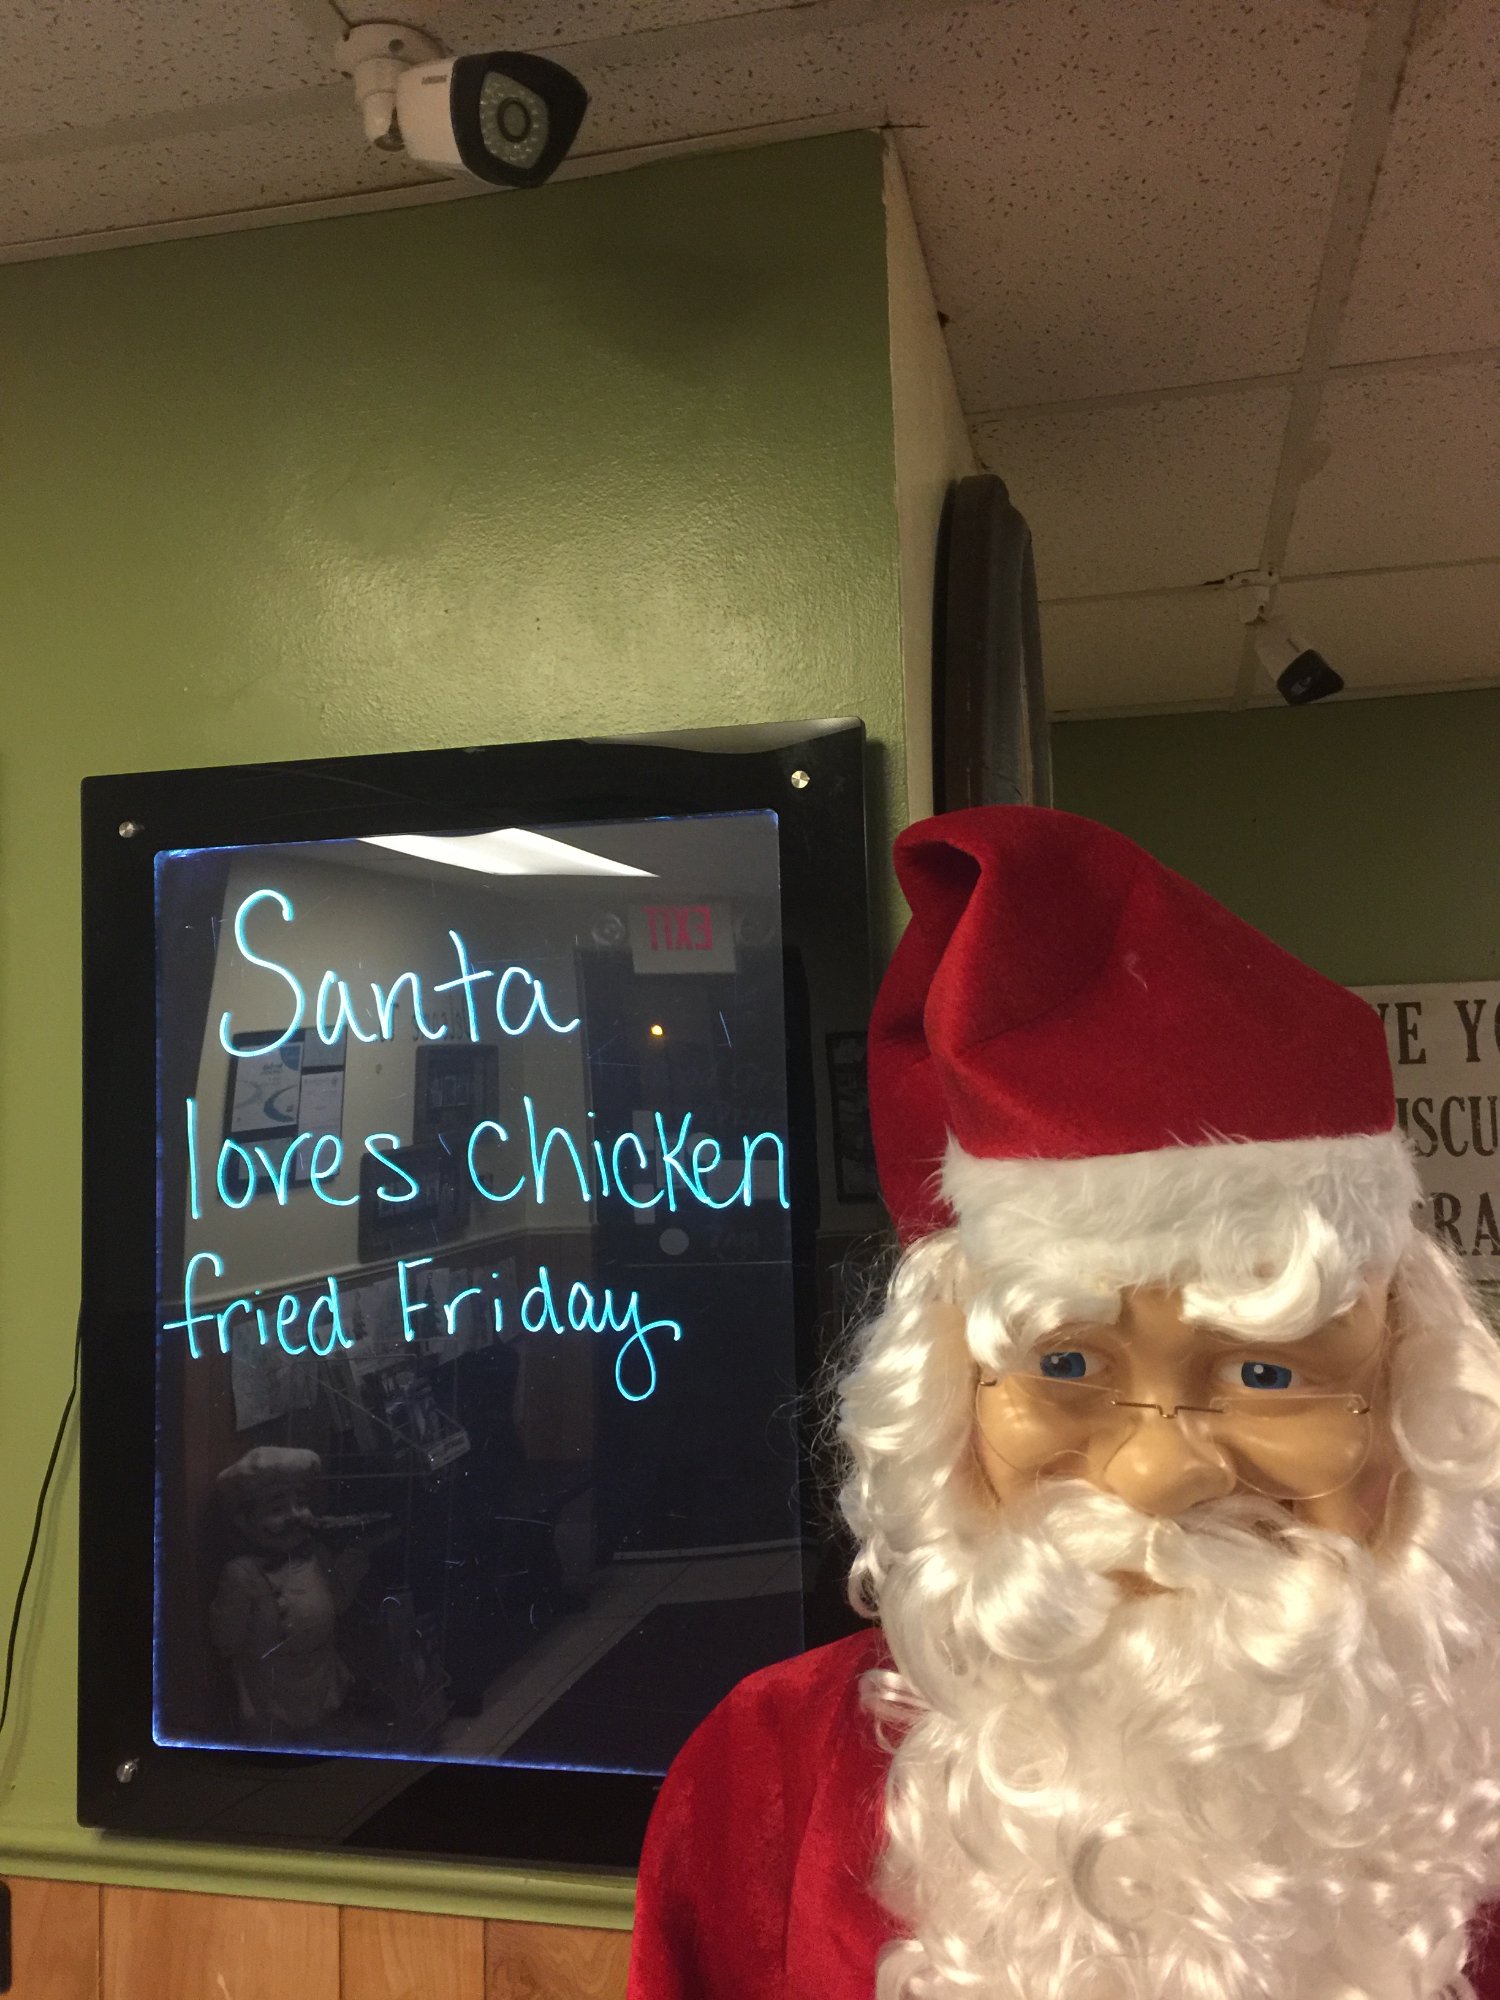 Santa
loves chicken
fried Friday
EXIT
VE YO
ISCU
GRA